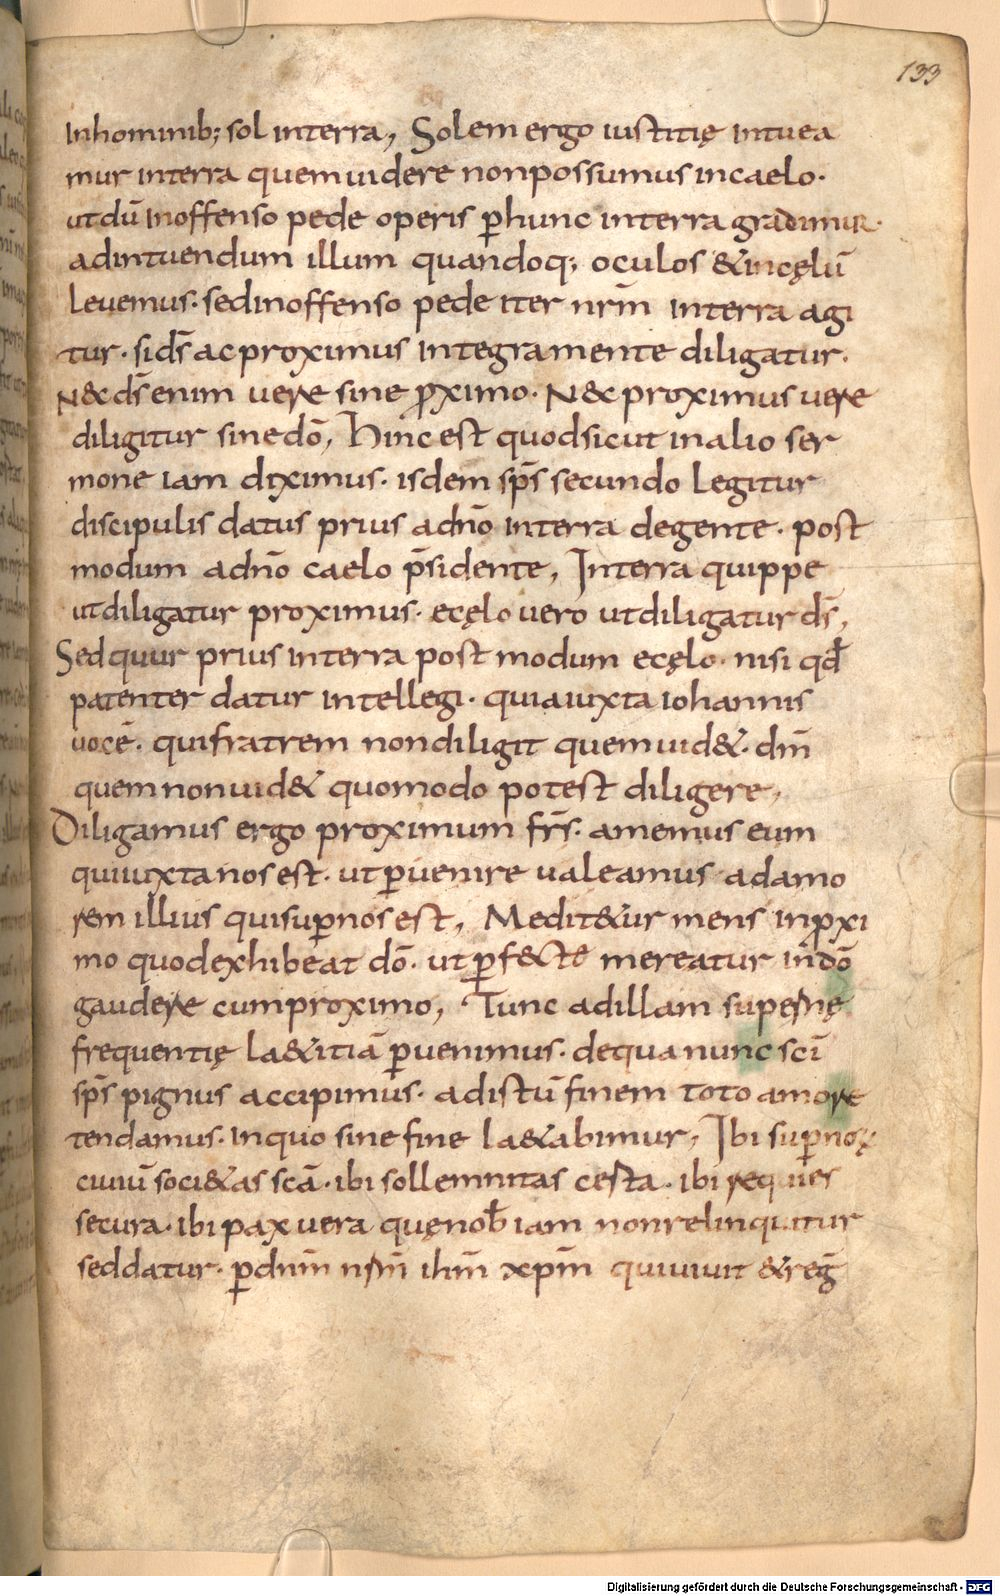 133
inhominib; sol interra, Solem ergo iustitię intuea
mur interra quemuidere nonpossumus incaelo·
utdū inoffenso pede operis ꝑhunc interra gradimur·
adintuendum illum quandoq; oculos &incęlū
leuemus· sedinoffenso pede iter nrm̄ interra agi
tur· sids̄ ac proximus integra mente diligatur·
N& ds̄ enim uere sine ꝓximo· N& proximus uere
diligitur sinedō, Hinc est quodsicut inalio ser
mone iam diximus· isdem sps̄ secundo legitur
discipulis datus prius adn̄o interra degente· post
modum adn̄o caelo p̄sidente, Interra quippe
utdiligatur proximus· ecęlo uero utdiligatur ds̄,
Sed quur prius interra post modum ecęlo· nisi qd̄
patenter datur intellegi· quiaiuxta iohannis
uocē· quifratrem nondiligit quemuid&· dm̄
quem nonuid& quomodo potest diligere,
Diligamus ergo proximum frs̄· amemus eum
quiiuxta nos est· ut ꝑuenire ualeamus adamo
rem illius quisuꝑnos est, Medit&ur mens inꝓxi
mo quodexhibeat dō· ut ꝑf&cte mereatur indō
gaudere cumproximo, Tunc adillam supernę
frequentię la&itiā ꝑuenimus· dequa nunc scī
sps̄ pignus accipimus· adistū finem toto amore
tendamus· inquo sine fine la&abimur, Ibi suꝑnoꝝ
ciuiū soci&as scā· ibi sollemnitas certa· ibi requies
secura· ibi pax uera quęnob̄ iam nonrelinquitur
seddatur· ꝑdnm̄ nrm̄ ihm̄ xpm̄ quiuiuit &reḡ
Digitalisierung gefördert durch die Deutsche Forschungsgemeinschaft - DFG